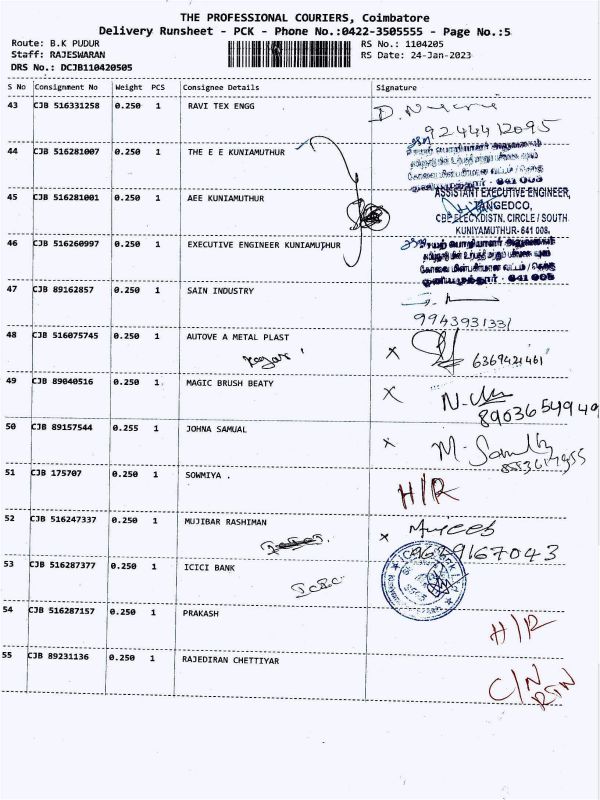 THE PROFESSIONAL COURIERS, Coimbatore
Delivery Runsheet - PCK - Phone No.:0422-3505555 - Page No.:5
Route: B.K PUDUR RS No.: 1104205
Staff: RAJESWARAN RS Date: 24-Jan-2023
DRS No.: DCJB110420505
S No Consignment No Weight PCS Consignee Details Signature
43 CJB 516331258 0.250 1 RAVI TEX ENGG
9244412095
44 CJB 516281007 0.250 1 THE E E KUNIAMUTHUR
641 008
45 CJB 516281001 0.250 1 AEE KUNIAMUTHUR
ASSISTANT EXECUTIVE ENGINEER,
TANGEDCO,
CBE.ELECY.DISTN. CIRCLE / SOUTH
KUNIYAMUTHUR- 641 008.
46 CJB 516260997 0.250 1 EXECUTIVE ENGINEER KUNIAMUTHUR
47 CJB 89162857 0.250 1 SAIN INDUSTRY
9943931331
48 CJB 516075745 0.250 1 AUTOVE A METAL PLAST
x 6369421461
49 CJB 89040516 0.250 1 MAGIC BRUSH BEATY
x
8903654949
50 CJB 89157544 0.255 1 JOHNA SAMUAL
x
51 CJB 175707 0.250 1 SOWMIYA .
H/R
52 CJB 516247337 0.250 1 MUJIBAR RASHIMAN
x Mujeeb
53 CJB 516287377 0.250 1 ICICI BANK
54 CJB 516287157 0.250 1 PRAKASH
H/R
55 CJB 89231136 0.250 1 RAJEDIRAN CHETTIYAR
C/N
RTN